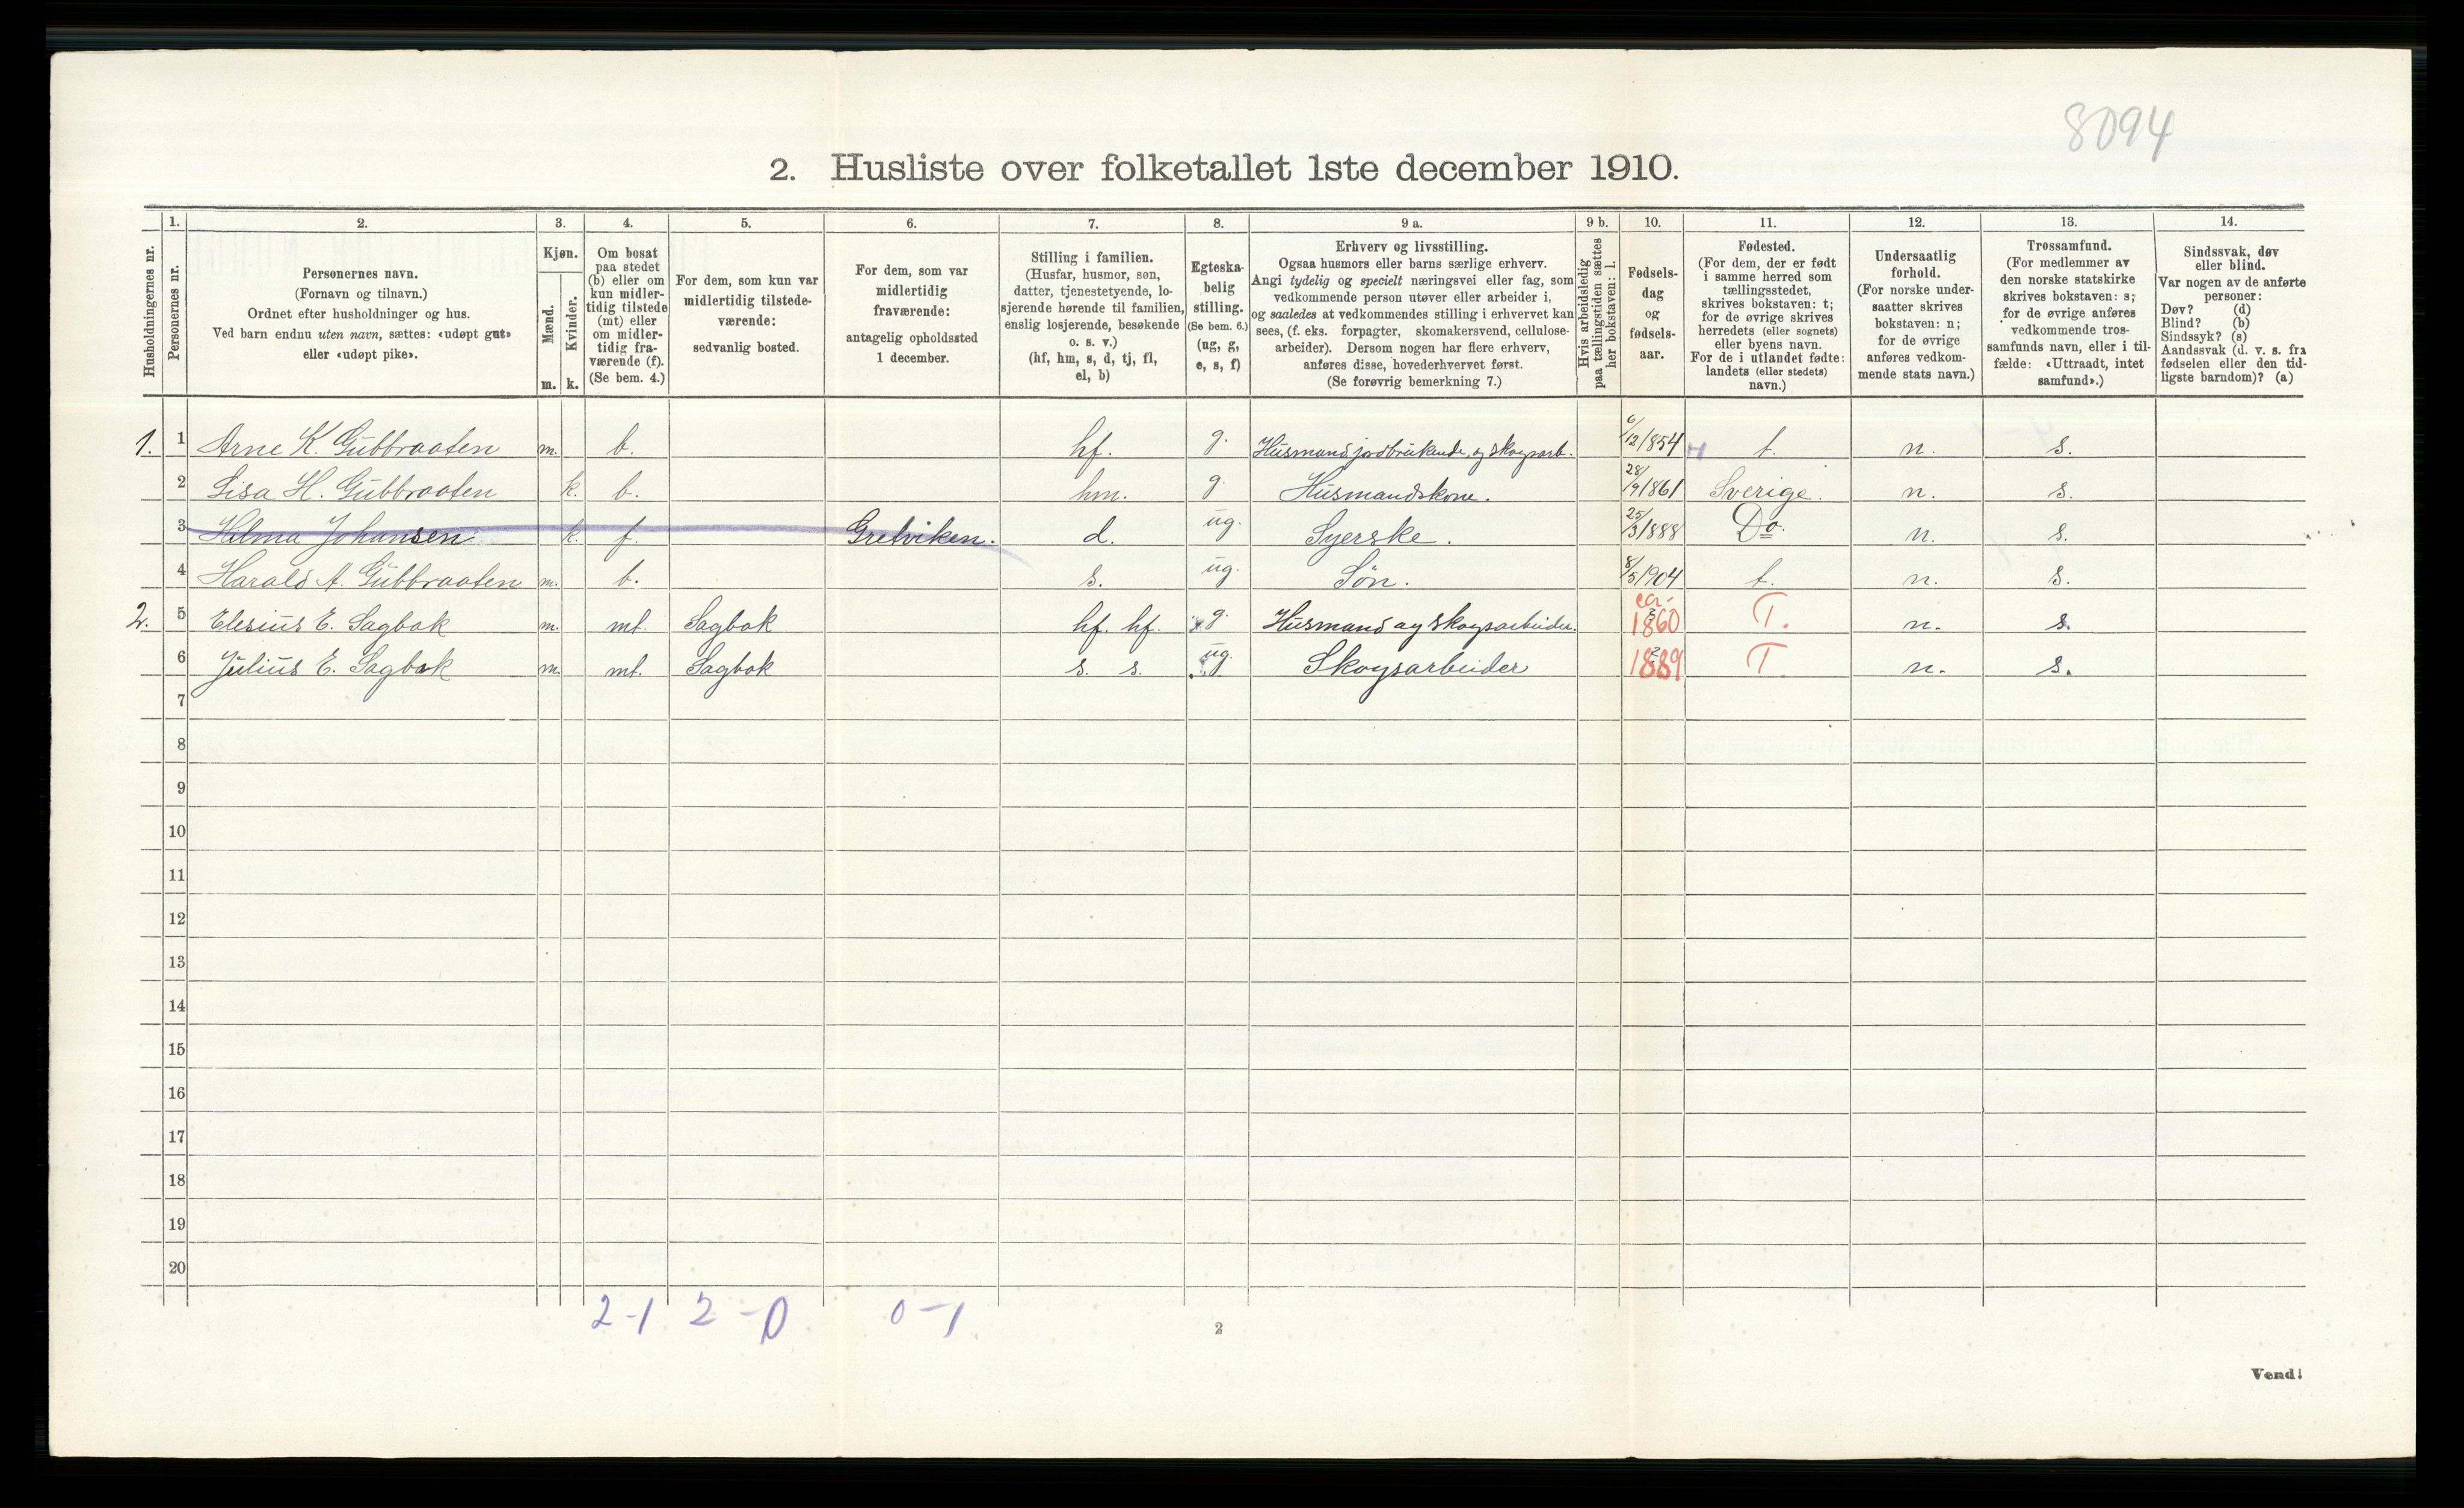 8094
2. Husliste over folketallet 1ste december 1910.
Husholdningernes nr.
1. Personernes nr.
2. Personernes navn.
(Fornavn og tilnavn.)
Ordnet efter husholdninger og hus.
Ved barn endnu uten navn, sættes: «udøpt gut»
eller «udøpt pike».
3. Kjøn.
Mænd. m.
Kvinder. k.
4. Om bosat
paa stedet
(b) eller om
kun midler-
tidig tilstede
(mt) eller
om midler-
tidig fra-
værende (f).
(Se bem. 4.)
5. For dem, som kun var
midlertidig tilstede-
værende:
sedvanlig bosted.
6. For dem, som var
midlertidig
fraværende:
antagelig opholdssted
1 december.
7. Stilling i familien.
(Husfar, husmor, søn,
datter, tjenestetyende, lo-
sjerende hørende til familien,
enslig losjerende, besøkende
o. s. v.)
(hf, hm, s, d, tj, fl,
el, b)
8. Egteska-
belig
stilling.
(Se bem. 6.)
(ug, g,
e, s, f)
9 a. Erhverv og livsstilling.
Ogsaa husmors eller barns særlige erhverv.
Angi tydelig og specielt næringsvei eller fag, som
vedkommende person utøver eller arbeider i,
og saaledes at vedkommendes stilling i erhvervet kan
sees, (f. eks. forpagter, skomakersvend, cellulose-
arbeider). Dersom nogen har flere erhverv,
anføres disse, hovederhvervet først.
(Se forøvrig bemerkning 7.)
9 b. Hvis arbeidsledig
paa tællingstiden sættes
her bokstaven: l.
10. Fødsels-
dag
og
fødsels-
aar.
11. Fødested.
(For dem, der er født
i samme herred som
tællingsstedet,
skrives bokstaven: t;
for de øvrige skrives
herredets (eller sognets)
eller byens navn.
For de i utlandet fødte:
landets (eller stedets)
navn.)
12. Undersaatlig
forhold.
(For norske under-
saatter skrives
bokstaven: n;
for de øvrige
anføres vedkom-
mende stats navn.)
13. Trossamfund.
(For medlemmer av
den norske statskirke
skrives bokstaven: s;
for de øvrige anføres
vedkommende tros-
samfunds navn, eller i til-
fælde: «Uttraadt, intet
samfund».)
14. Sindssvak, døv
eller blind.
Var nogen av de anførte
personer:
Døv? (d)
Blind? (b)
Sindssyk? (s)
Aandssvak (d. v. s. fra
fødselen eller den tid-
ligste barndom)? (a)
1. 1 Arne K. Gubbraaten m. b. hf. g. Husmand jordbrukende, og skogsarb. 6/12 1854 t. n. s.
2 Lisa H. Gubbraaten k. b. hm. g. Husmandskone. 28/9 1861 Sverige. n. s.
3 Hilma Johansen k. f. Gretviken. d. ug. Syerske. 25/3 1888 Do. n. s.
4 Harald A. Gubbraaten m. b. s. ug. Søn. 8/5 1904 t. n. s.
2. 5 Elesius E. Sagbak m. mt. Sagbak hf. hf. g. Husmand og skogsarbeider. ca. 1860 T. n. s.
6 Julius E. Sagbak m. mt. Sagbak s. s. ug. Skogsarbeider 1889 T. n. s.
7
8
9
10
11
12
13
14
15
16
17
18
19
20
2-1 2-0 0-1
2
Vend!